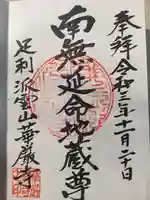 奉拝 令和三年十一月二十日
南無延命地蔵尊
足利 派雲山 華厳寺